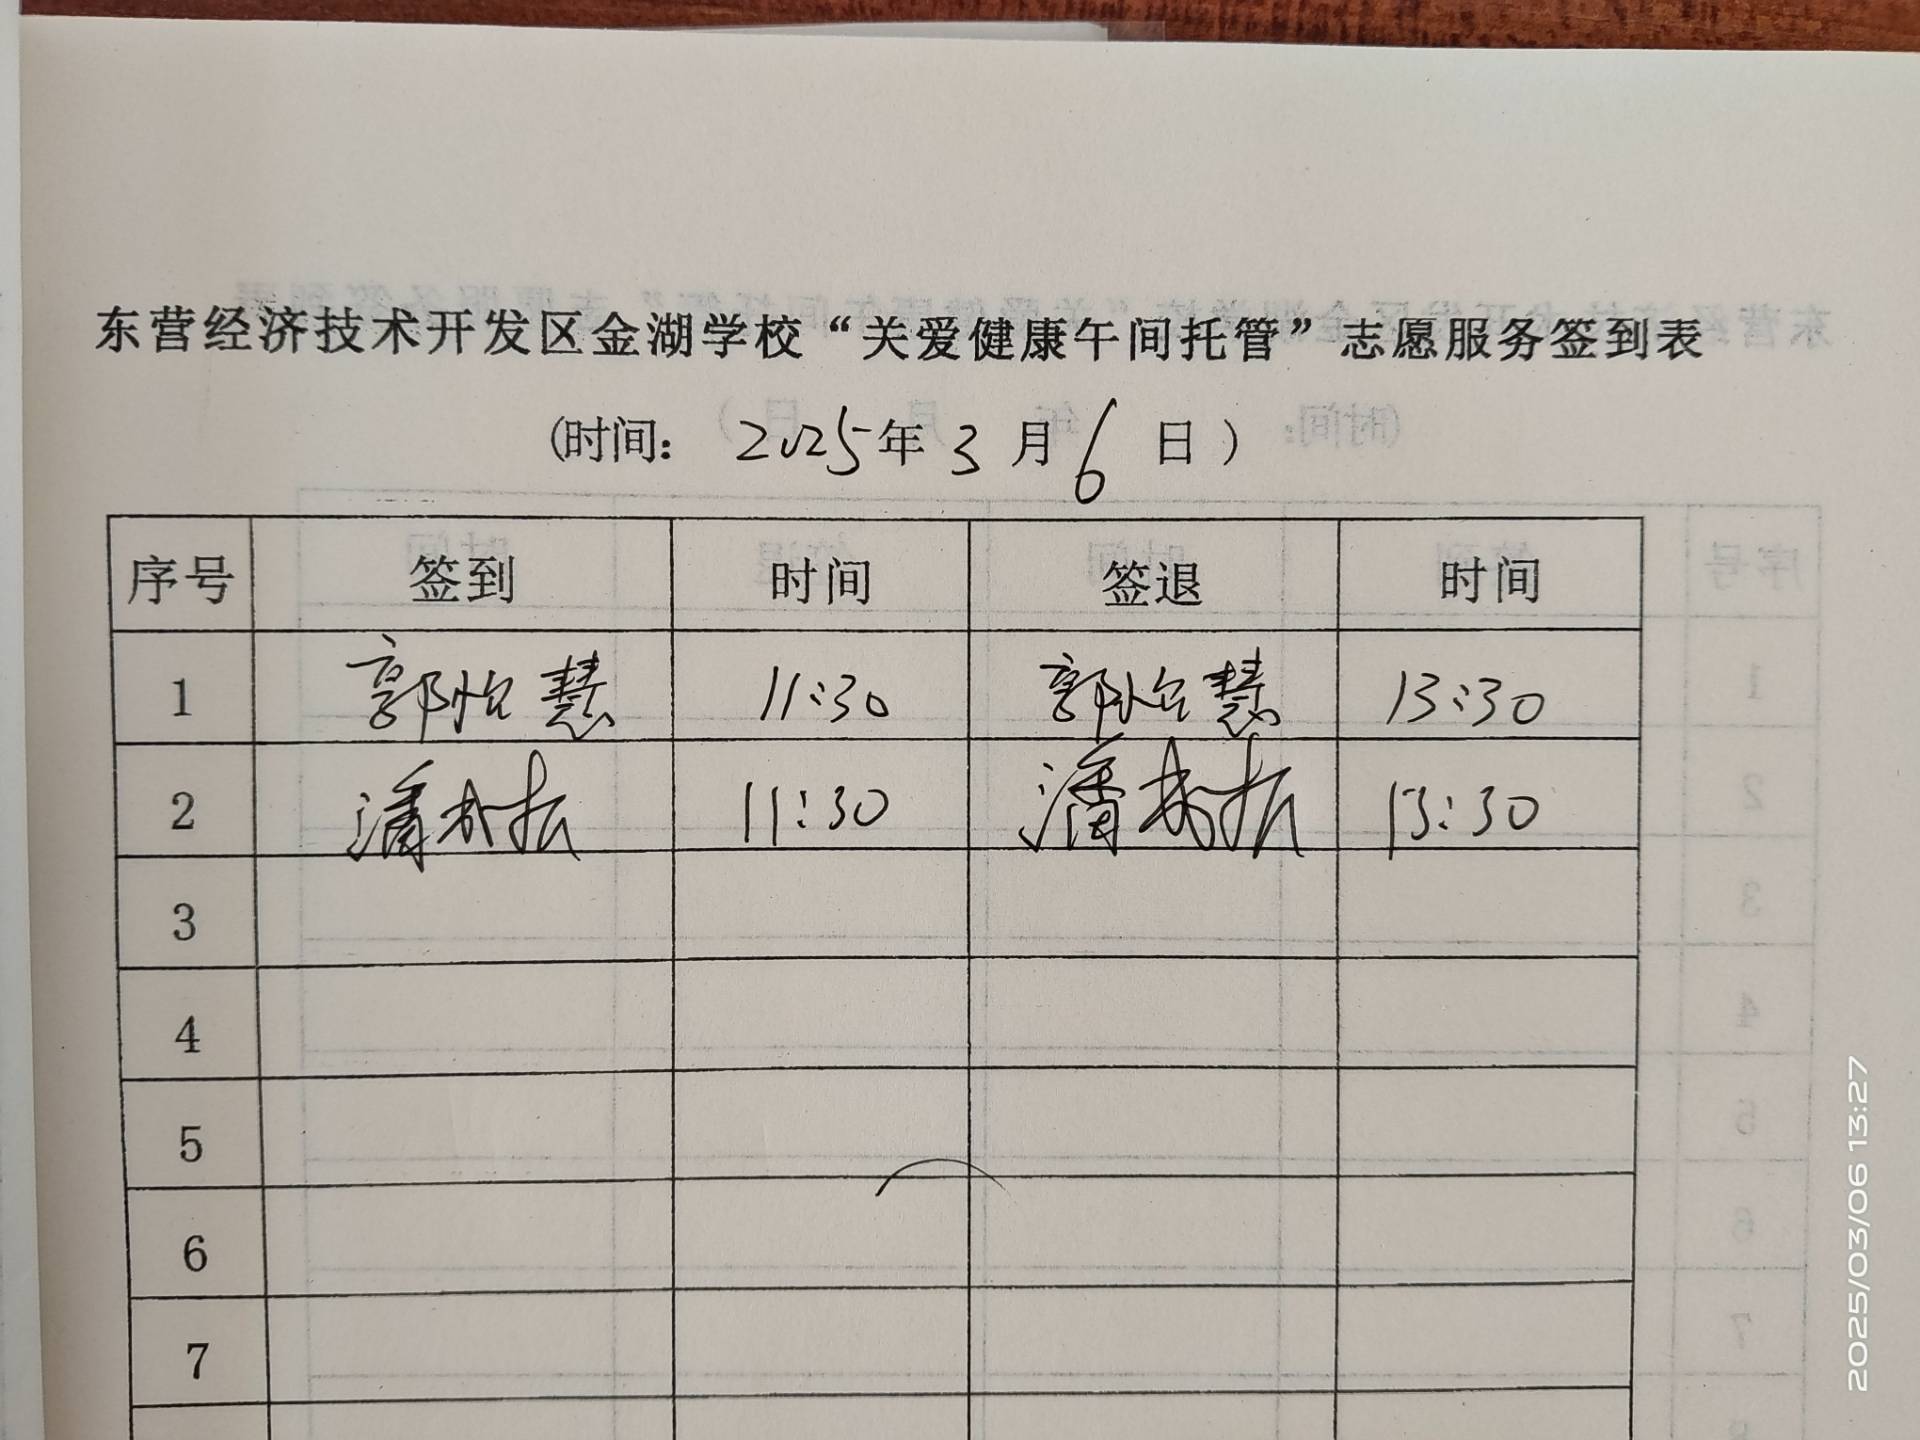 东营经济技术开发区金湖学校“关爱健康午间托管”志愿服务签到表
(时间: 2025年 3 月 6 日 )
序号 签到 时间 签退 时间
1 郭怡慧 11:30 郭怡慧 13:30
2 潘 11:30 潘 13:30
3
4
5
6
7
2025/03/06 13:27